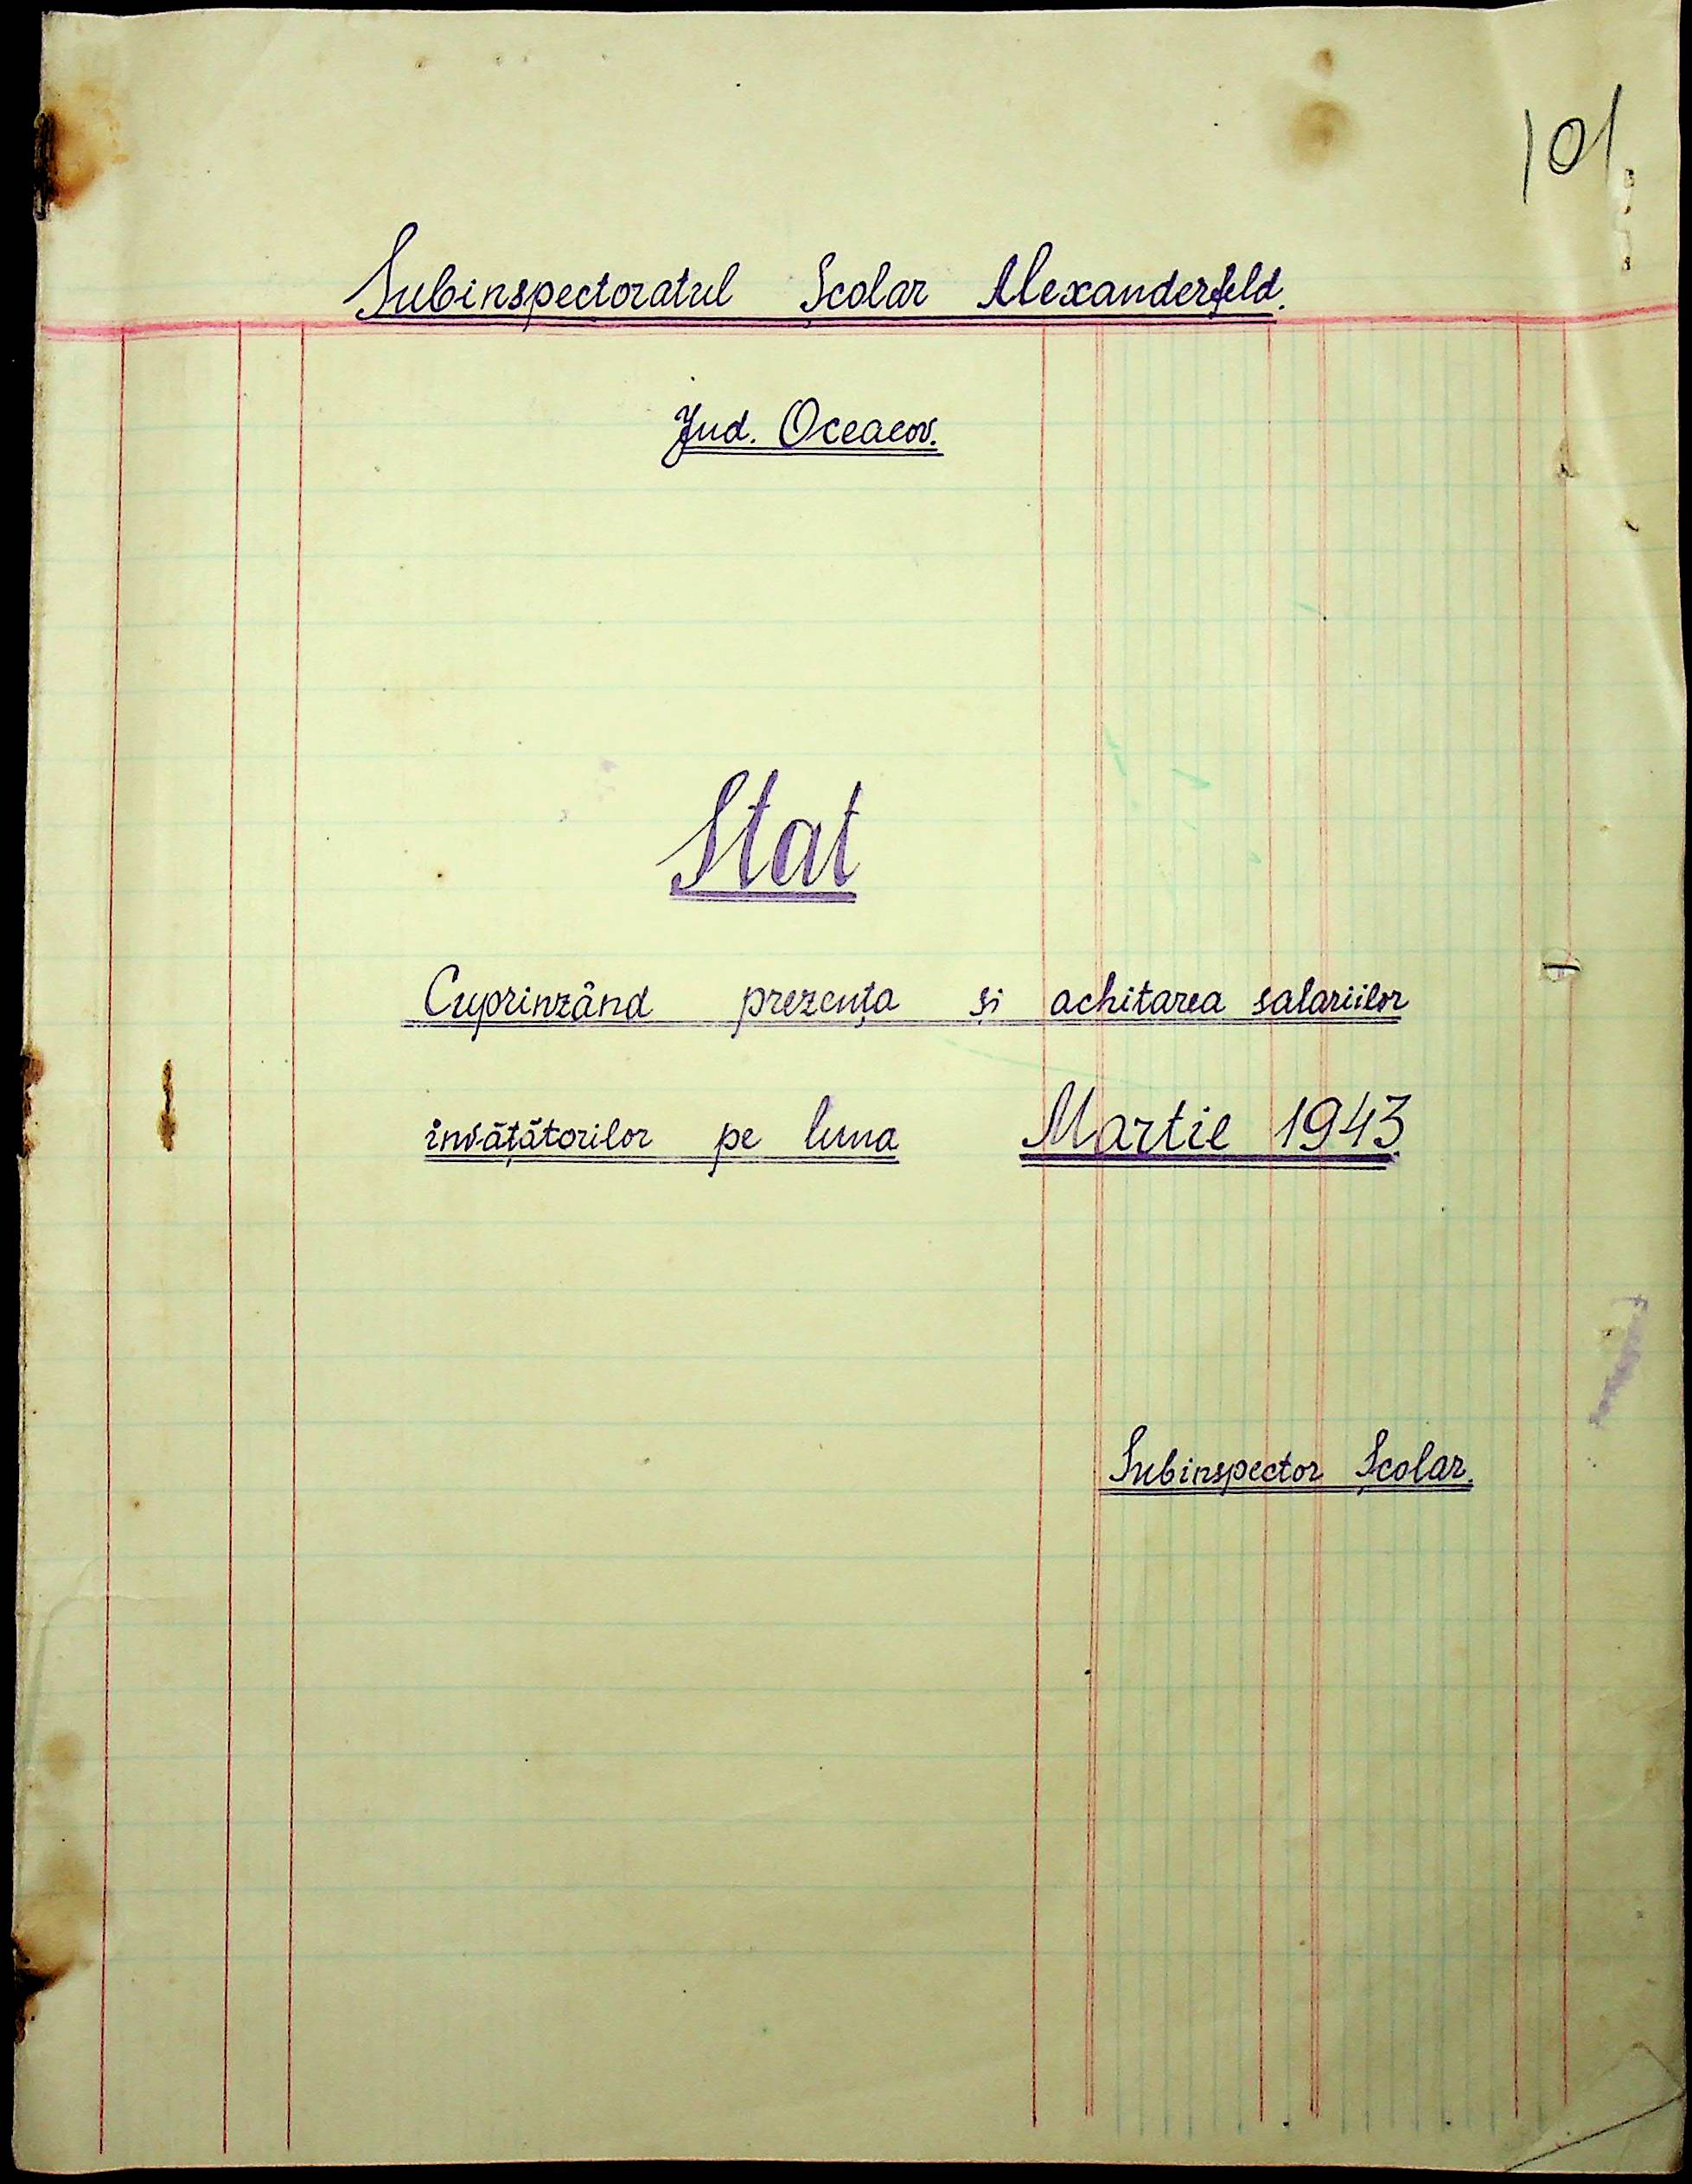 101
Subinspectoratul Școlar Alexanderfeld.
Jud. Oceacov.
Stat
Cuprinzând prezența și achitarea salariilor
învățătorilor pe luna Martie 1943.
Subinspector Școlar.